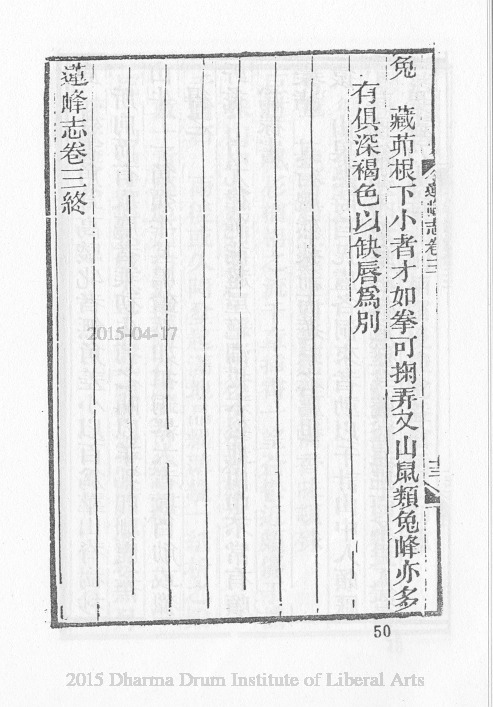 兔　藏茆根下小者才如拳可掬弄又山鼠類兔峰亦多
有俱深褐色以缺脣爲別
蓮峰志卷三終
蓮峰志卷三
十三
50
2015-04-17
2015 Dharma Drum Institute of Liberal Arts